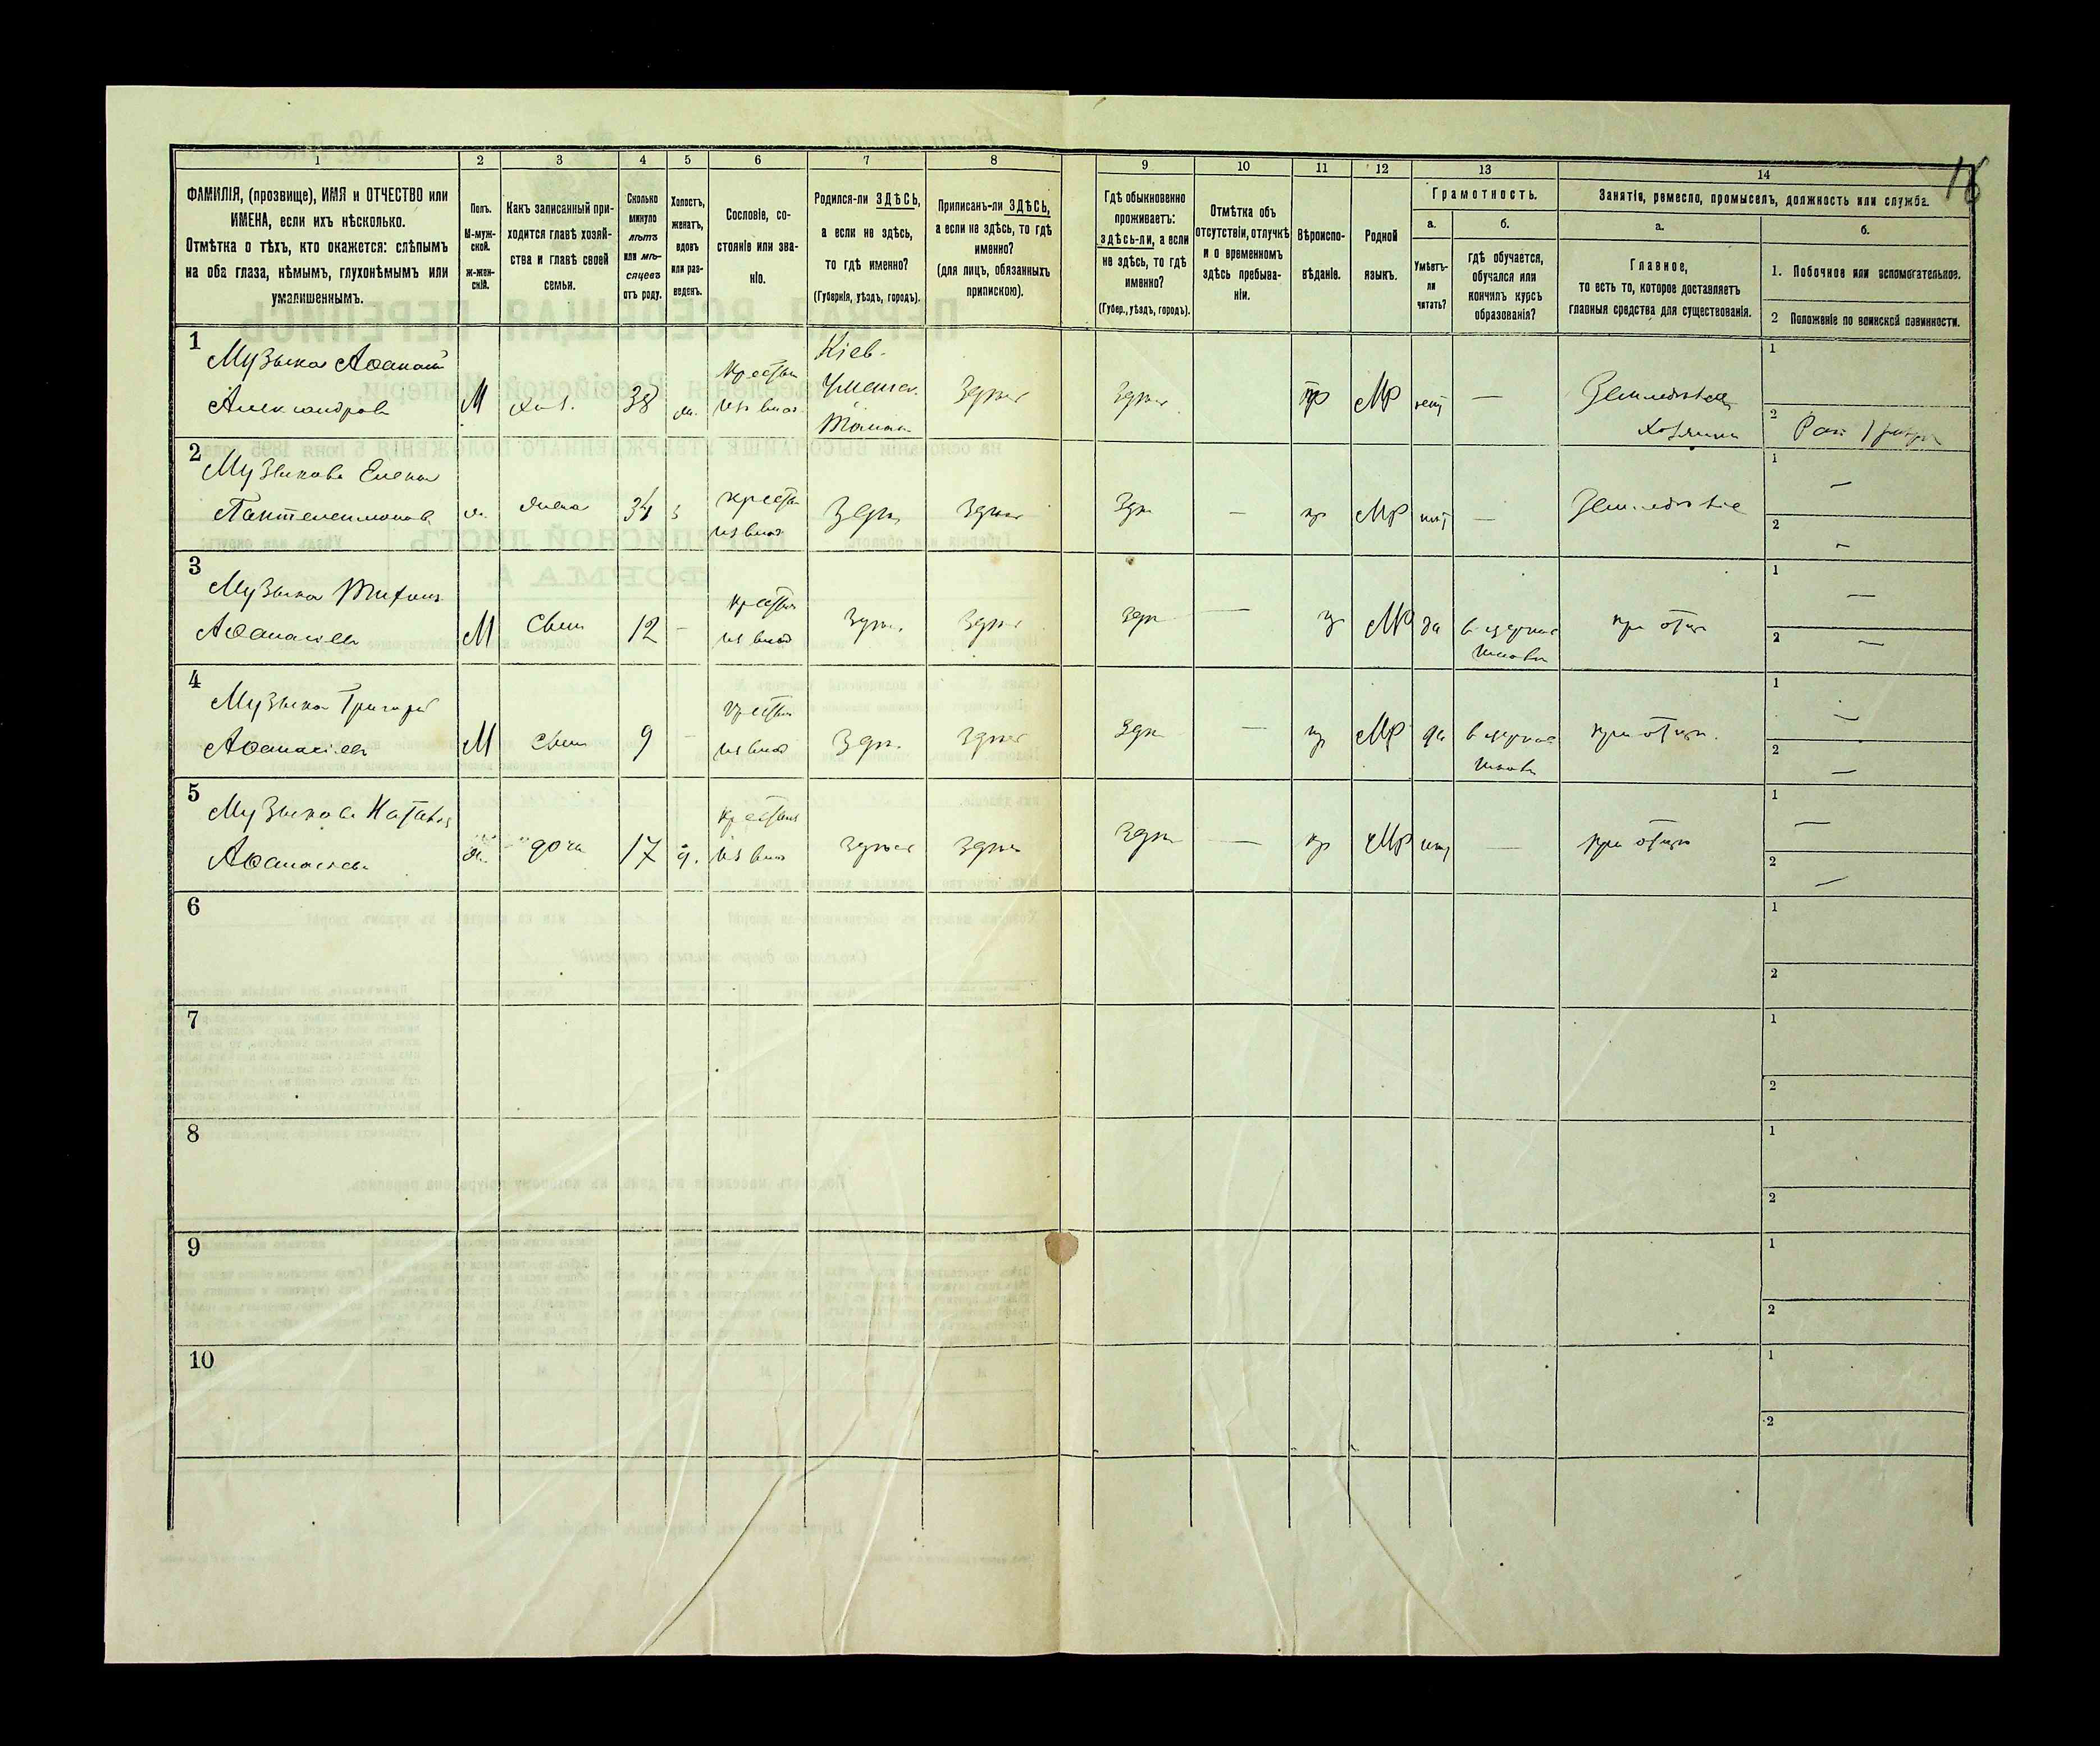 16
1 2 3 4 5 6 7 8 9 10 11 12 13 14
ФАМИЛІЯ, (прозвище), ИМЯ и ОТЧЕСТВО или
ИМЕНА, если ихъ нѣсколько.
Отмѣтка о тѣхъ, кто окажется: слѣпымъ
на оба глаза, нѣмымъ, глухонѣмымъ или
умалишеннымъ.
Полъ.
М-муж-
ской.
ж-жен-
скій.
Какъ записанный при-
ходится главѣ хозяй-
ства и главѣ своей
семьи.
Сколько
минуло
лѣтъ
или мѣ-
сяцевъ
отъ роду.
Холостъ,
женатъ,
вдовъ
или раз-
веденъ.
Сословіе, со-
стояніе или зва-
ніе.
Родился-ли ЗДѢСЬ,
а если не здѣсь,
то гдѣ именно?
(Губернія, уѣздъ, городъ).
Приписанъ-ли ЗДѢСЬ,
а если не здѣсь, то гдѣ
именно?
(для лицъ, обязанныхъ
припискою).
Гдѣ обыкновенно
проживаетъ:
здѣсь-ли, а если
не здѣсь, то гдѣ
именно?
(Губер., уѣздъ, городъ).
Отмѣтка объ
отсутствіи, отлучкѣ
и о временномъ
здѣсь пребыва-
ніи.
Вѣроиспо-
вѣданіе.
Родной
языкъ.
Грамотность.
а.
Умѣетъ-
ли
читать?
б.
гдѣ обучается,
обучался или
кончилъ курсъ
образованія?
Занятіе, ремесло, промыселъ, должность или служба.
а.
Главное,
то есть то, которое доставляетъ
главныя средства для существованія.
б.
1. Побочное или вспомогательное.
2 Положеніе по воинской повинности.
1
Музыка Аѳанасій
Александровъ
М
хоз.
38
ж.
Крестьян
изъ влад.
Кіев.
Уманск.
здѣсь
здѣсь
пр
МР
нет
—
Земледѣліе
хозяинъ
1
2
2
Музыкова Елена
Пантелеимонова
ж.
жена
34
з
крестьян
из влад
здѣсь
здѣсь
здѣсь
—
пр
МР
нет
—
Земледѣліе
1 —
2 —
3
Музыка Тихонъ
Аѳанасіевъ
М
сынъ
12
—
крестьян
из влад
здѣсь
здѣсь
здѣсь
—
пр
МР
да
в церков
школѣ
при отцѣ
1 —
2 —
4
Музыка Григорій
Аѳанасіевъ
М
сынъ
9
—
крестьян
из влад
здѣсь
здѣсь
здѣсь
—
пр
МР
да
в церков
школѣ
при отцѣ.
1 —
2 —
5
Музыкова Наталія
Аѳанасіева
ж.
дочь
17
д.
крестьян
из влад
здѣсь
здѣсь
здѣсь
—
пр
МР
нет
—
при отцѣ
1 —
2 —
6
1
2
7
1
2
8
1
2
9
1
2
10
1
2